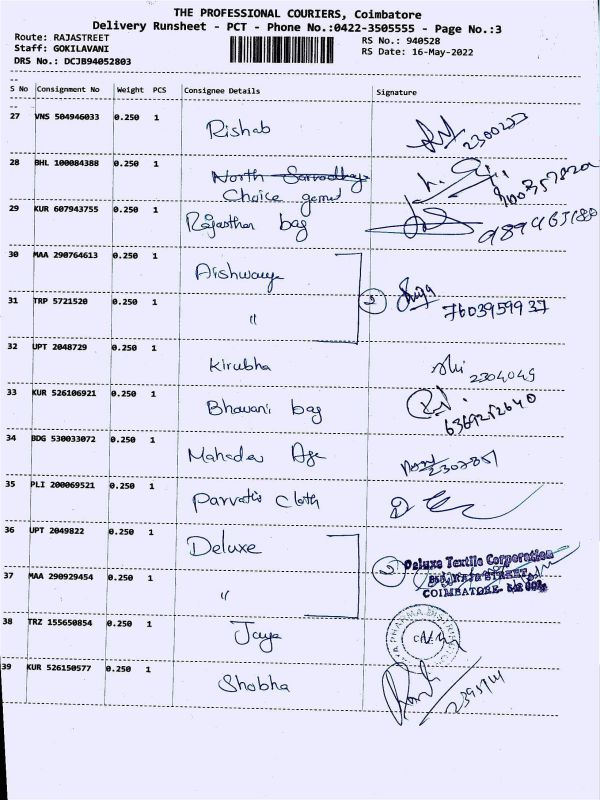 THE PROFESSIONAL COURIERS, Coimbatore
Delivery Runsheet - PCT - Phone No.:0422-3505555 - Page No.:3
Route: RAJASTREET
RS No.: 940528
Staff: GOKILAVANI
RS Date: 16-May-2022
DRS No.: DCJB94052803
S No Consignment No Weight PCS Consignee Details Signature
27 VNS 504946033 0.250 1 Rishab 2300233
28 BHL 100084388 0.250 1 North
Choice
29 KUR 607943755 0.250 1 Rajasthan bag
30 MAA 290764613 0.250 1 Aishwarya
31 TRP 5721520 0.250 1 " 2 7603959937
32 UPT 2048729 0.250 1 Kirubha 2304049
33 KUR 526106921 0.250 1 Bhavani bag 6369252640
34 BDG 530033072 0.250 1 Mahadev Age 2302851
35 PLI 200069521 0.250 1 Parvatis cloth
36 UPT 2049822 0.250 1 Deluxe
2 Deluxe Textile Corporation
RAJA STREET,
37 MAA 290929454 0.250 1 " COIMBATORE-
38 TRZ 155650854 0.250 1 Jaya PHARMA
39 KUR 526150577 0.250 1 Shobha